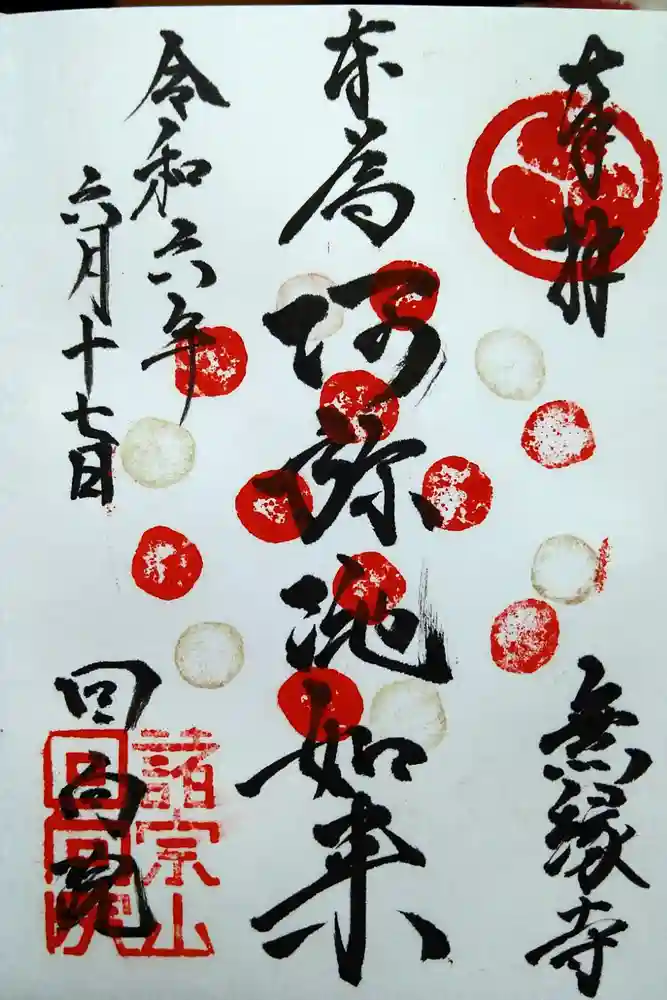 奉拝
無縁寺
本尊
阿弥陀如来
令和六年
六月十七日
回向院
諸宗山
回向院